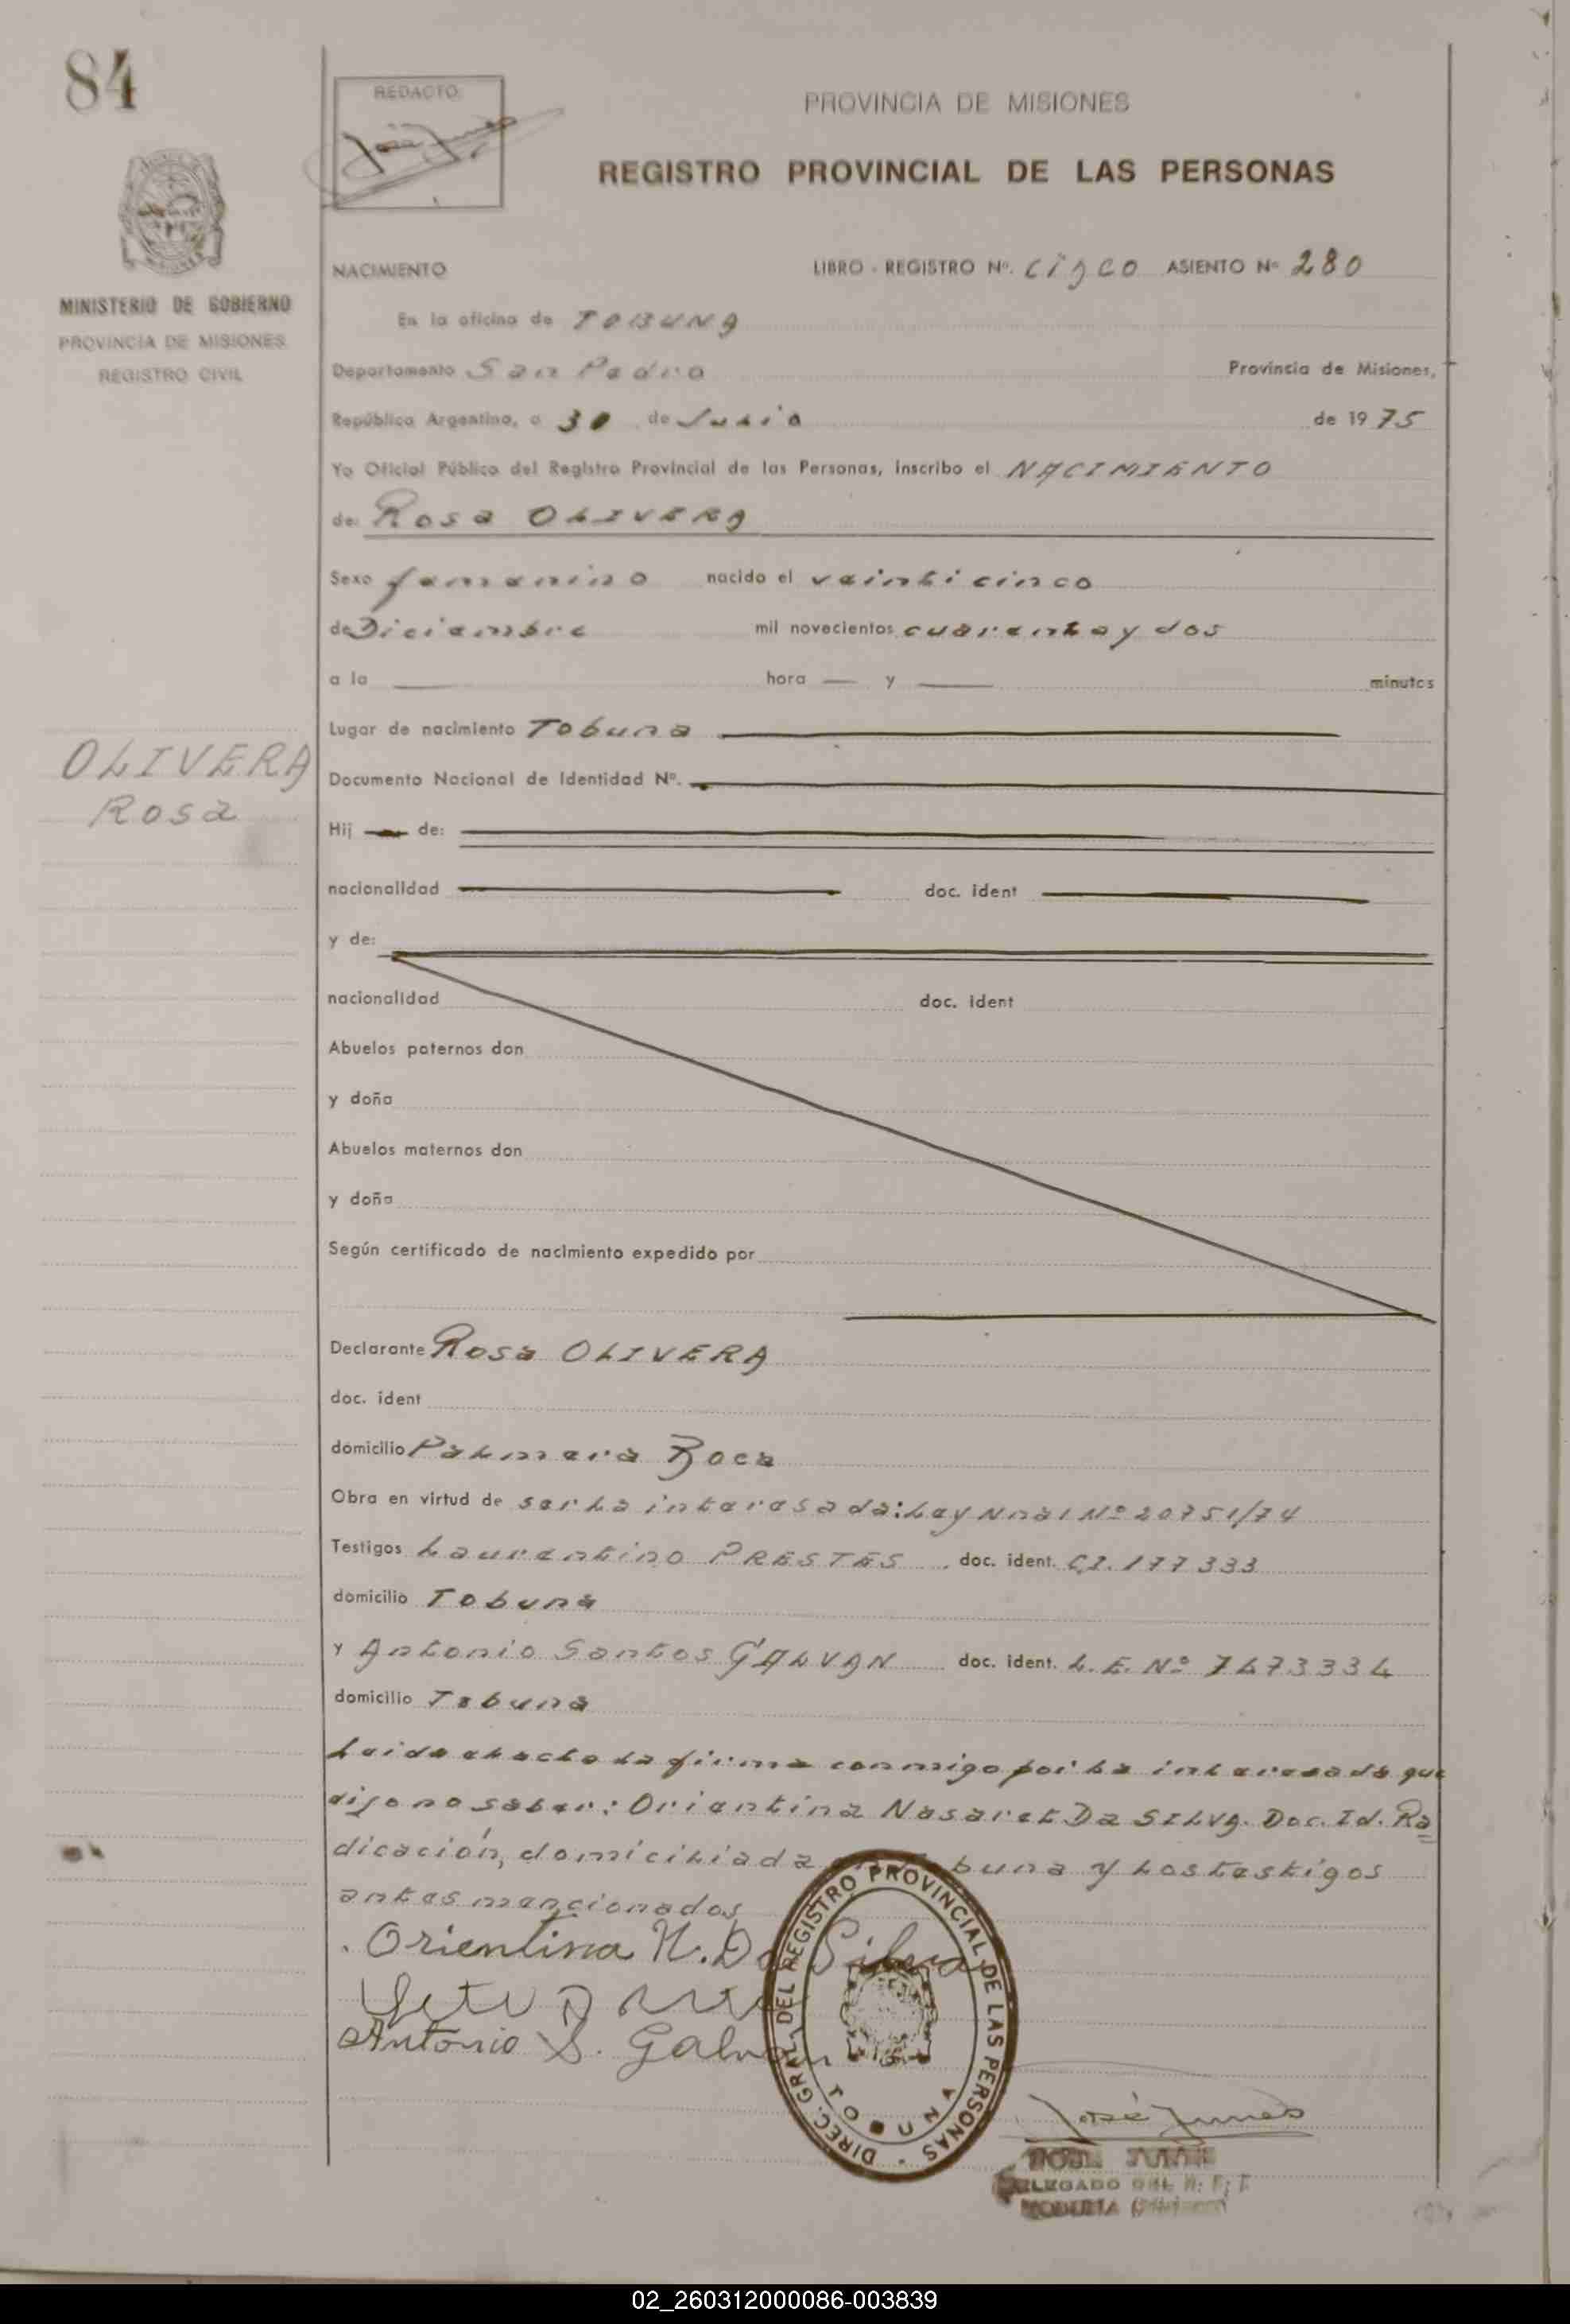 84
REDACTO
PROVINCIA DE MISIONES
REGISTRO PROVINCIAL DE LAS PERSONAS
MINISTERIO DE GOBIERNO
PROVINCIA DE MISIONES
REGISTRO CIVIL
NACIMIENTO LIBRO - REGISTRO Nº. cinco ASIENTO Nº 280
En la oficina de TOBUNA
Departamento San Pedro Provincia de Misiones,
República Argentina, a 30 de Junio de 1975
Yo Oficial Público del Registro Provincial de las Personas, inscribo el NACIMIENTO
de: Rosa OLIVERA
Sexo femenino nacido el veinticinco
de Diciembre mil novecientos cuarenta y dos
a la — hora — y — minutos
OLIVERA
Rosa
Lugar de nacimiento Tobuna
Documento Nacional de Identidad Nº.
Hij — de:
nacionalidad doc. ident
y de:
nacionalidad doc. ident
Abuelos paternos don
y doña
Abuelos maternos don
y doña
Según certificado de nacimiento expedido por
Declarante Rosa OLIVERA
doc. ident
domicilio Palmera Boca
Obra en virtud de ser la interesada: Ley Nnal Nº 20751/74
Testigos Laurentino PRESTES doc. ident. C.I. 177333
domicilio Tobuna
y Antonio Santos GALVAN doc. ident. L.E. Nº 7473334
domicilio Tobuna
Leido el acto la firma conmigo por la interesada que
dijo no saber: Orientina Nasaret Da SILVA. Doc. Id. Ra
dicación, domiciliada buna y los testigos
antes mencionados
Orientina N. Da Silva
Antonio S. Galvan
DIREC. GRAL. DEL REGISTRO PROVINCIAL DE LAS PERSONAS
TOBUNA
José Junes
DELEGADO
02_260312000086-003839